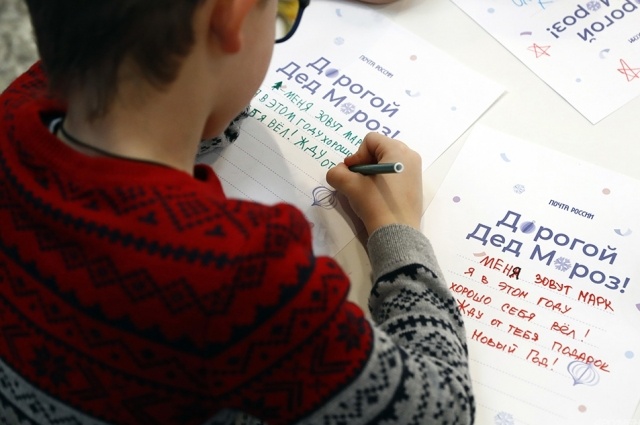 ПОЧТА РОССИИ
Дорогой
Дед Мороз!
МЕНЯ ЗОВУТ МАРК
Я В ЭТОМ ГОДУ ХОРОШО
ВЁЛ! ЖДУ ОТ
ПОЧТА РОССИИ
Дорогой
Дед Мороз!
МЕНЯ ЗОВУТ МАРК
Я В ЭТОМ ГОДУ
ХОРОШО СЕБЯ ВЁЛ!
ЖДУ ОТ ТЕБЯ ПОДАРОК
НОВЫЙ ГОД!
Дорогой
Мороз!